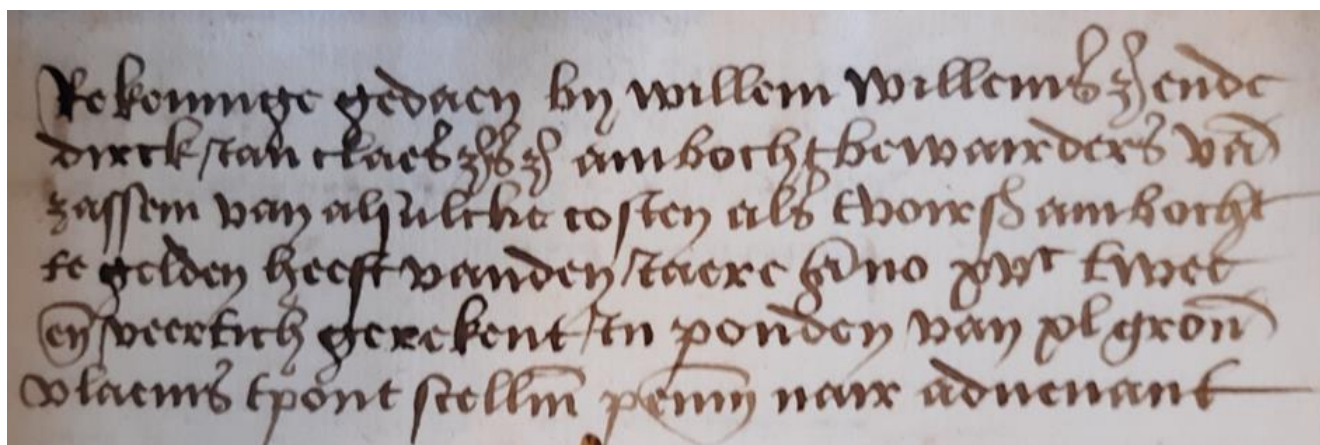 Rekeninge gedaen by willem willems z ende
dirck Jan claes zs z ambochtbewairders van
zassem van alsulcke costen als tvoirs ambocht
te gelden heeft vanden Jaere anno xvc twee
en veertich gerekent In ponden van xl gron
vlaems tpont stellin penn nair advenant